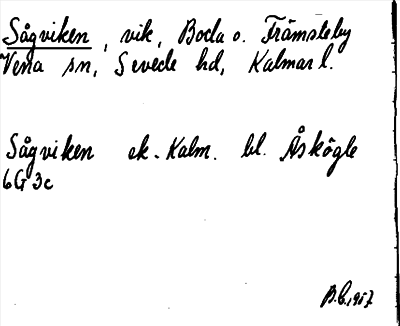 Sågviken, vik, Boda o. Främsteby
Vena sn, Sevede hd, Kalmar l.
Sågviken ek. Kalm. bl. Åskögle
6G3c
B.C. 1957